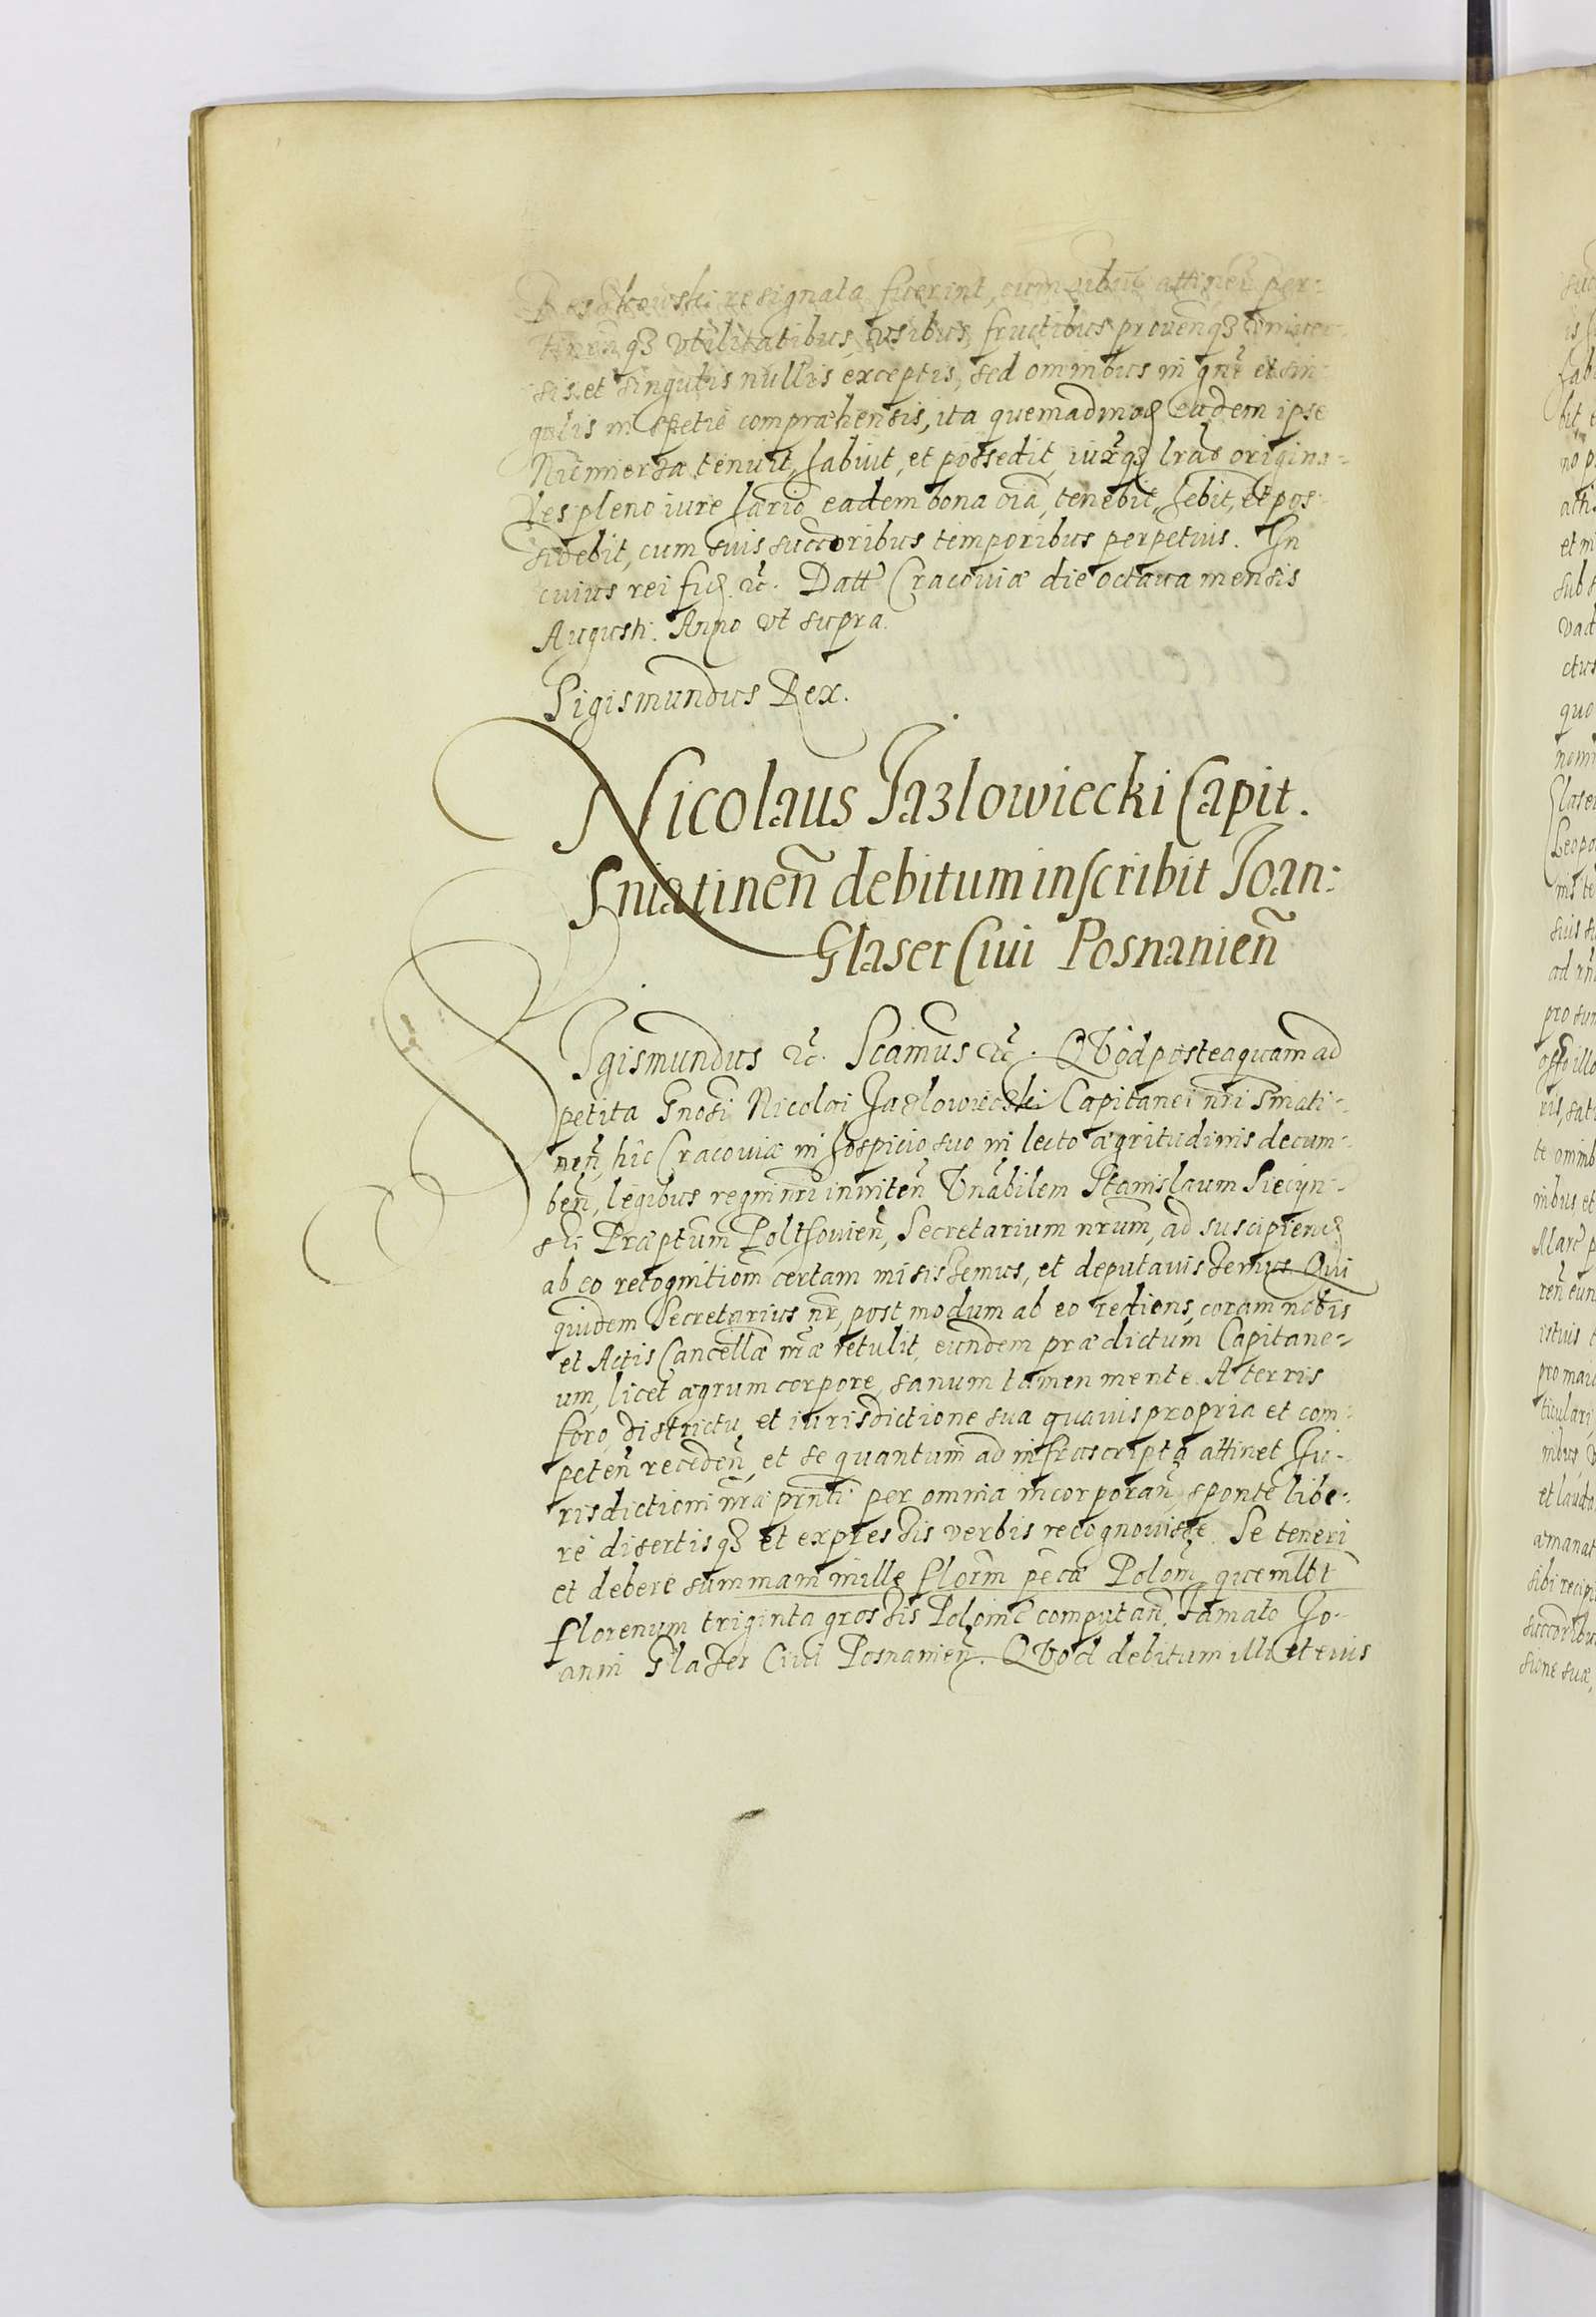 resignata fuerint, cum attineñ per-
tineñqȝ vtilitatibus, vsibus, fructibus prouenqȝ vniuer-
sis et singulis nullis exceptis, sed omnibus in gnē et sin-
gulis in spetie compræhensis, ita quemadmod eadem ipse
Niemierza tenuit, habuit, et possedit, iuxqȝ lrās origina-
les pleno iure hærio eadem bona oīa, tenebit, hēbit, et pos-
sidebit, cum suis succoribus temporibus perpetuis. In
cuius rei fid. &c. Datt Cracouiæ die octaua mensis
Augusti. Anno vt supra.
Sigismundus Rex.
Nicolaus Jazlowiecki Capit.
Sniatineñ debitum inscribit Ioan:
Glaser Ciui Posnanieñ
SIgismundus &c. Scamus &c. QVod posteaquam ad
petita Gnosi Nicolai Jazlowiecki Capitanei nri Sniati-
neñ, hic Cracouiæ in hospicio suo in lecto ægritudinis decum-
beñ, legibus regni nri inniteñ Vnabilem Stanislaum Siecyn-
ski Præptum Poltfouieñ, Secretarium nrum, ad suscipiend
ab eo recognitiom certam misissemus, et deputauissemus. Qui
quidem Secretarius nr, post modum ab eo rediens, coram nobis
et Actis Cancellæ nræ retulit, eundem prædictum Capitane-
um, licet ægrum corpore, sanum tamen mente. A terris
foro, districtu et iurisdictione sua quauis propria et com-
peteñ recedeñ, et se quantum ad infrascripta attinet Iu-
risdictioni nræ prnti per omnia incorporañ, sponte libe-
re disertisqȝ et expressis verbis recognouisse. Se teneri
et debere summam mille florm pecæ Polom, quemlbt
florenum triginta grossis Polom computañ. Famato Io-
anni Glaser Ciui Posnanieñ. QVod debitum illi et eius